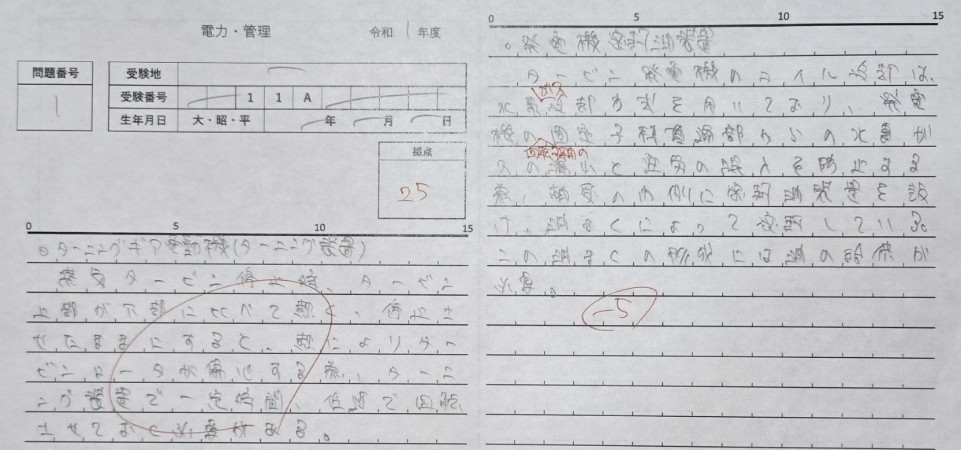 電力・管理
令和1年度
問題番号
1
受験地
受験番号
11A
生年月日 大・昭・平 年 月 日
採点
25
0 5 10 15
○ターニングギア電動機(ターニング装置)
蒸気タービン停止後、タービン
上部が下部に比べて熱く、停止さ
せたままにすると、熱によりター
ビンロータが偏心する為、ターニ
ング装置で一定時間、低速で回転
させておく必要がある。
0 5 10 15
○発電機密封油装置
タービン発電機のコイル冷却は、
水素冷却方式を用いており、発電
機の固定子 貫通部からの水素ガ
スの漏出と空気の 入を防止する
為、軸受の内側に密封油装置を設
け、油まくによって密封している。
この油まくの形成には油の給供が
必要。
-5